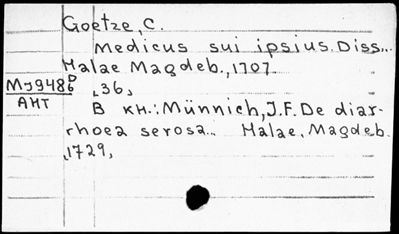 Goetze, C.
Medicus sui ipsius. Diss...
Halae Magdeb., 1707.
MJ948б
АНТ
,36,
В кн.: Münnich, J.F. De diar-
rhoea serosa... Halae, Magdeb.
,1729,